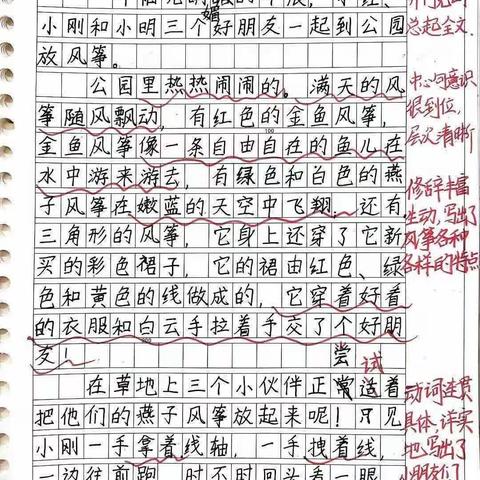 媚
小刚和小明三个好朋友一起到公园
放风筝。
公园里热热闹闹的。满天的风
筝随风飘动,有红色的金鱼风筝,
100
金鱼风筝像一条自由自在的鱼儿在
水中游来游去,有绿色和白色的燕
子风筝在嫩蓝的天空中飞翔。还有
三角形的风筝,它身上还穿了它新
买的彩色裙子,它的裙由红色、绿
色和黄色的线做成的,它穿着好看
的衣服和白云手拉着手交了个好朋
200
友!
尝试
在草地上三个小伙伴正常适着
把他们的燕子风筝放起来呢!只见
小刚一手拿着线轴,一手拽着线,
一边往前跑,时不时回头看一眼
总起全文
中心句意识
很到位,
层次清晰
修辞丰富
生动,写出了
风筝各种
各样的特点
动词连贯
具体、详实
地写出了
小朋友们